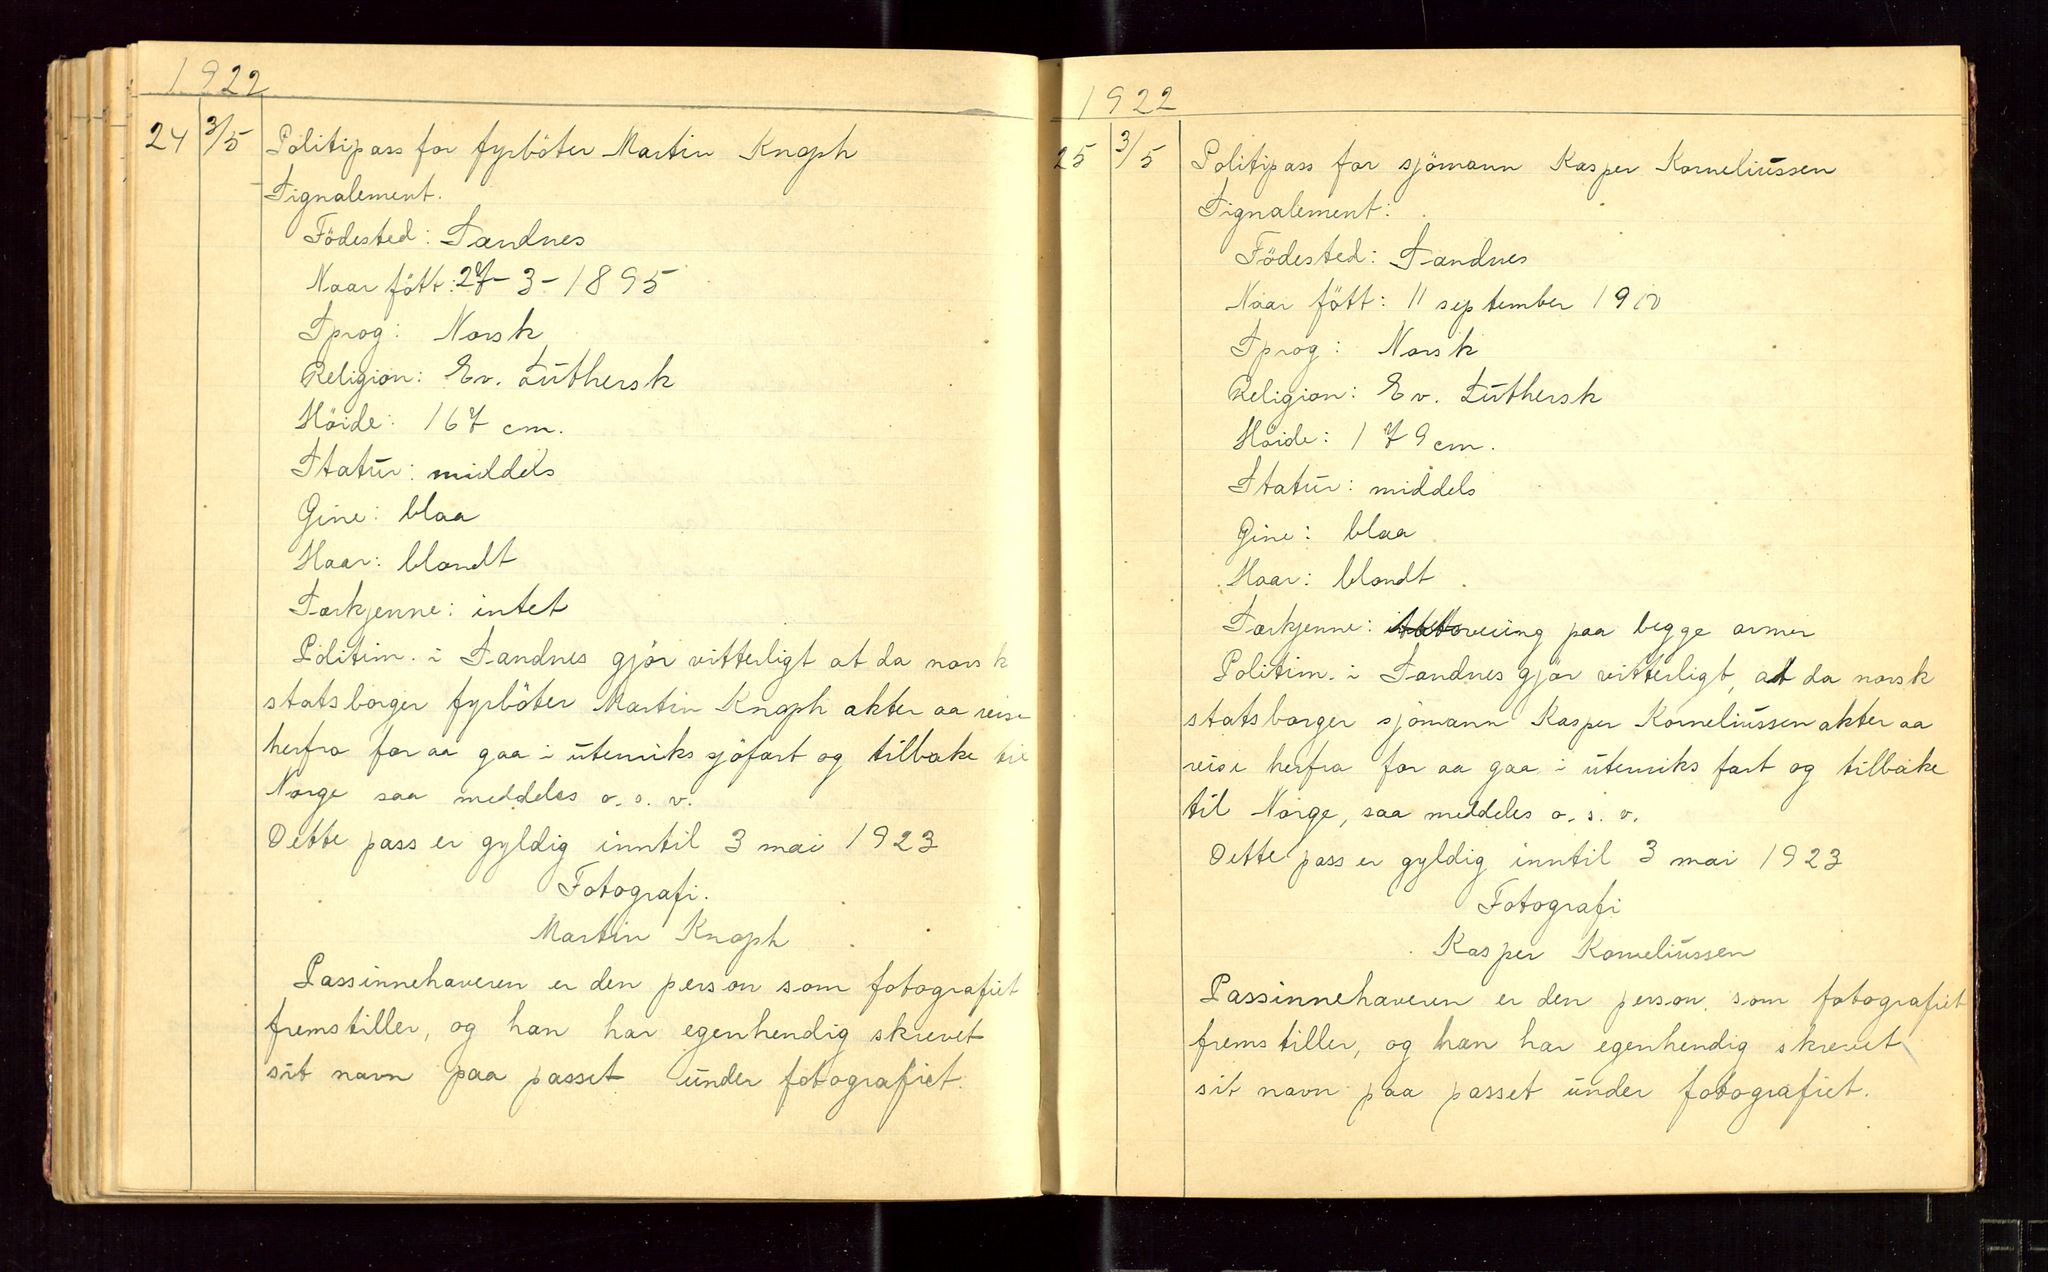 1922
24 3/5 Politipass for fyrböter Martin Knoph
Signalement.
Födested: Sandnes
Naar fött: 27-3-1895
Sprog: Norsk
Religion: Ev. Luthersk
Höide: 167 cm.
Statur: middels
Öine: blaa
Haar: blondt
Særkjenne: intet
Politim. i Sandnes gjör vitterligt at da norsk
statsborger fyrböter Martin Knoph akter aa reise
herfra for aa gaa i utenriks sjöfart og tilbake til
Norge saa meddeles o. s. v.
Dette pass er gyldig inntil 3 mai 1923
Fotografi.
Martin Knoph
Passinnehaveren er den person som fotografiet
fremstiller, og han har egenhendig skrevet
sit navn paa passet under fotografiet.
1922
25 3/5 Politipass for sjömann Kasper Korneliussen
Signalement:
Födested: Sandnes
Naar fött: 11 september 1900
Sprog: Norsk
Religion: Ev. Luthersk
Höide: 179 cm.
Statur: middels
Öine: blaa
Haar: blondt
Særkjenne: tatovering paa begge armer
Politim. i Sandnes gjör vitterligt, at da norsk
statsborger sjömann Kasper Korneliussen akter aa
reise herfra for aa gaa i utenriks fart og tilbake
til Norge, saa meddeles o. s. v.
Dette pass er gyldig inntil 3 mai 1923
Fotografi
Kasper Korneliussen
Passinnehaveren er den person som fotografiet
fremstiller, og han har egenhendig skrevet
sit navn paa passet under fotografiet.